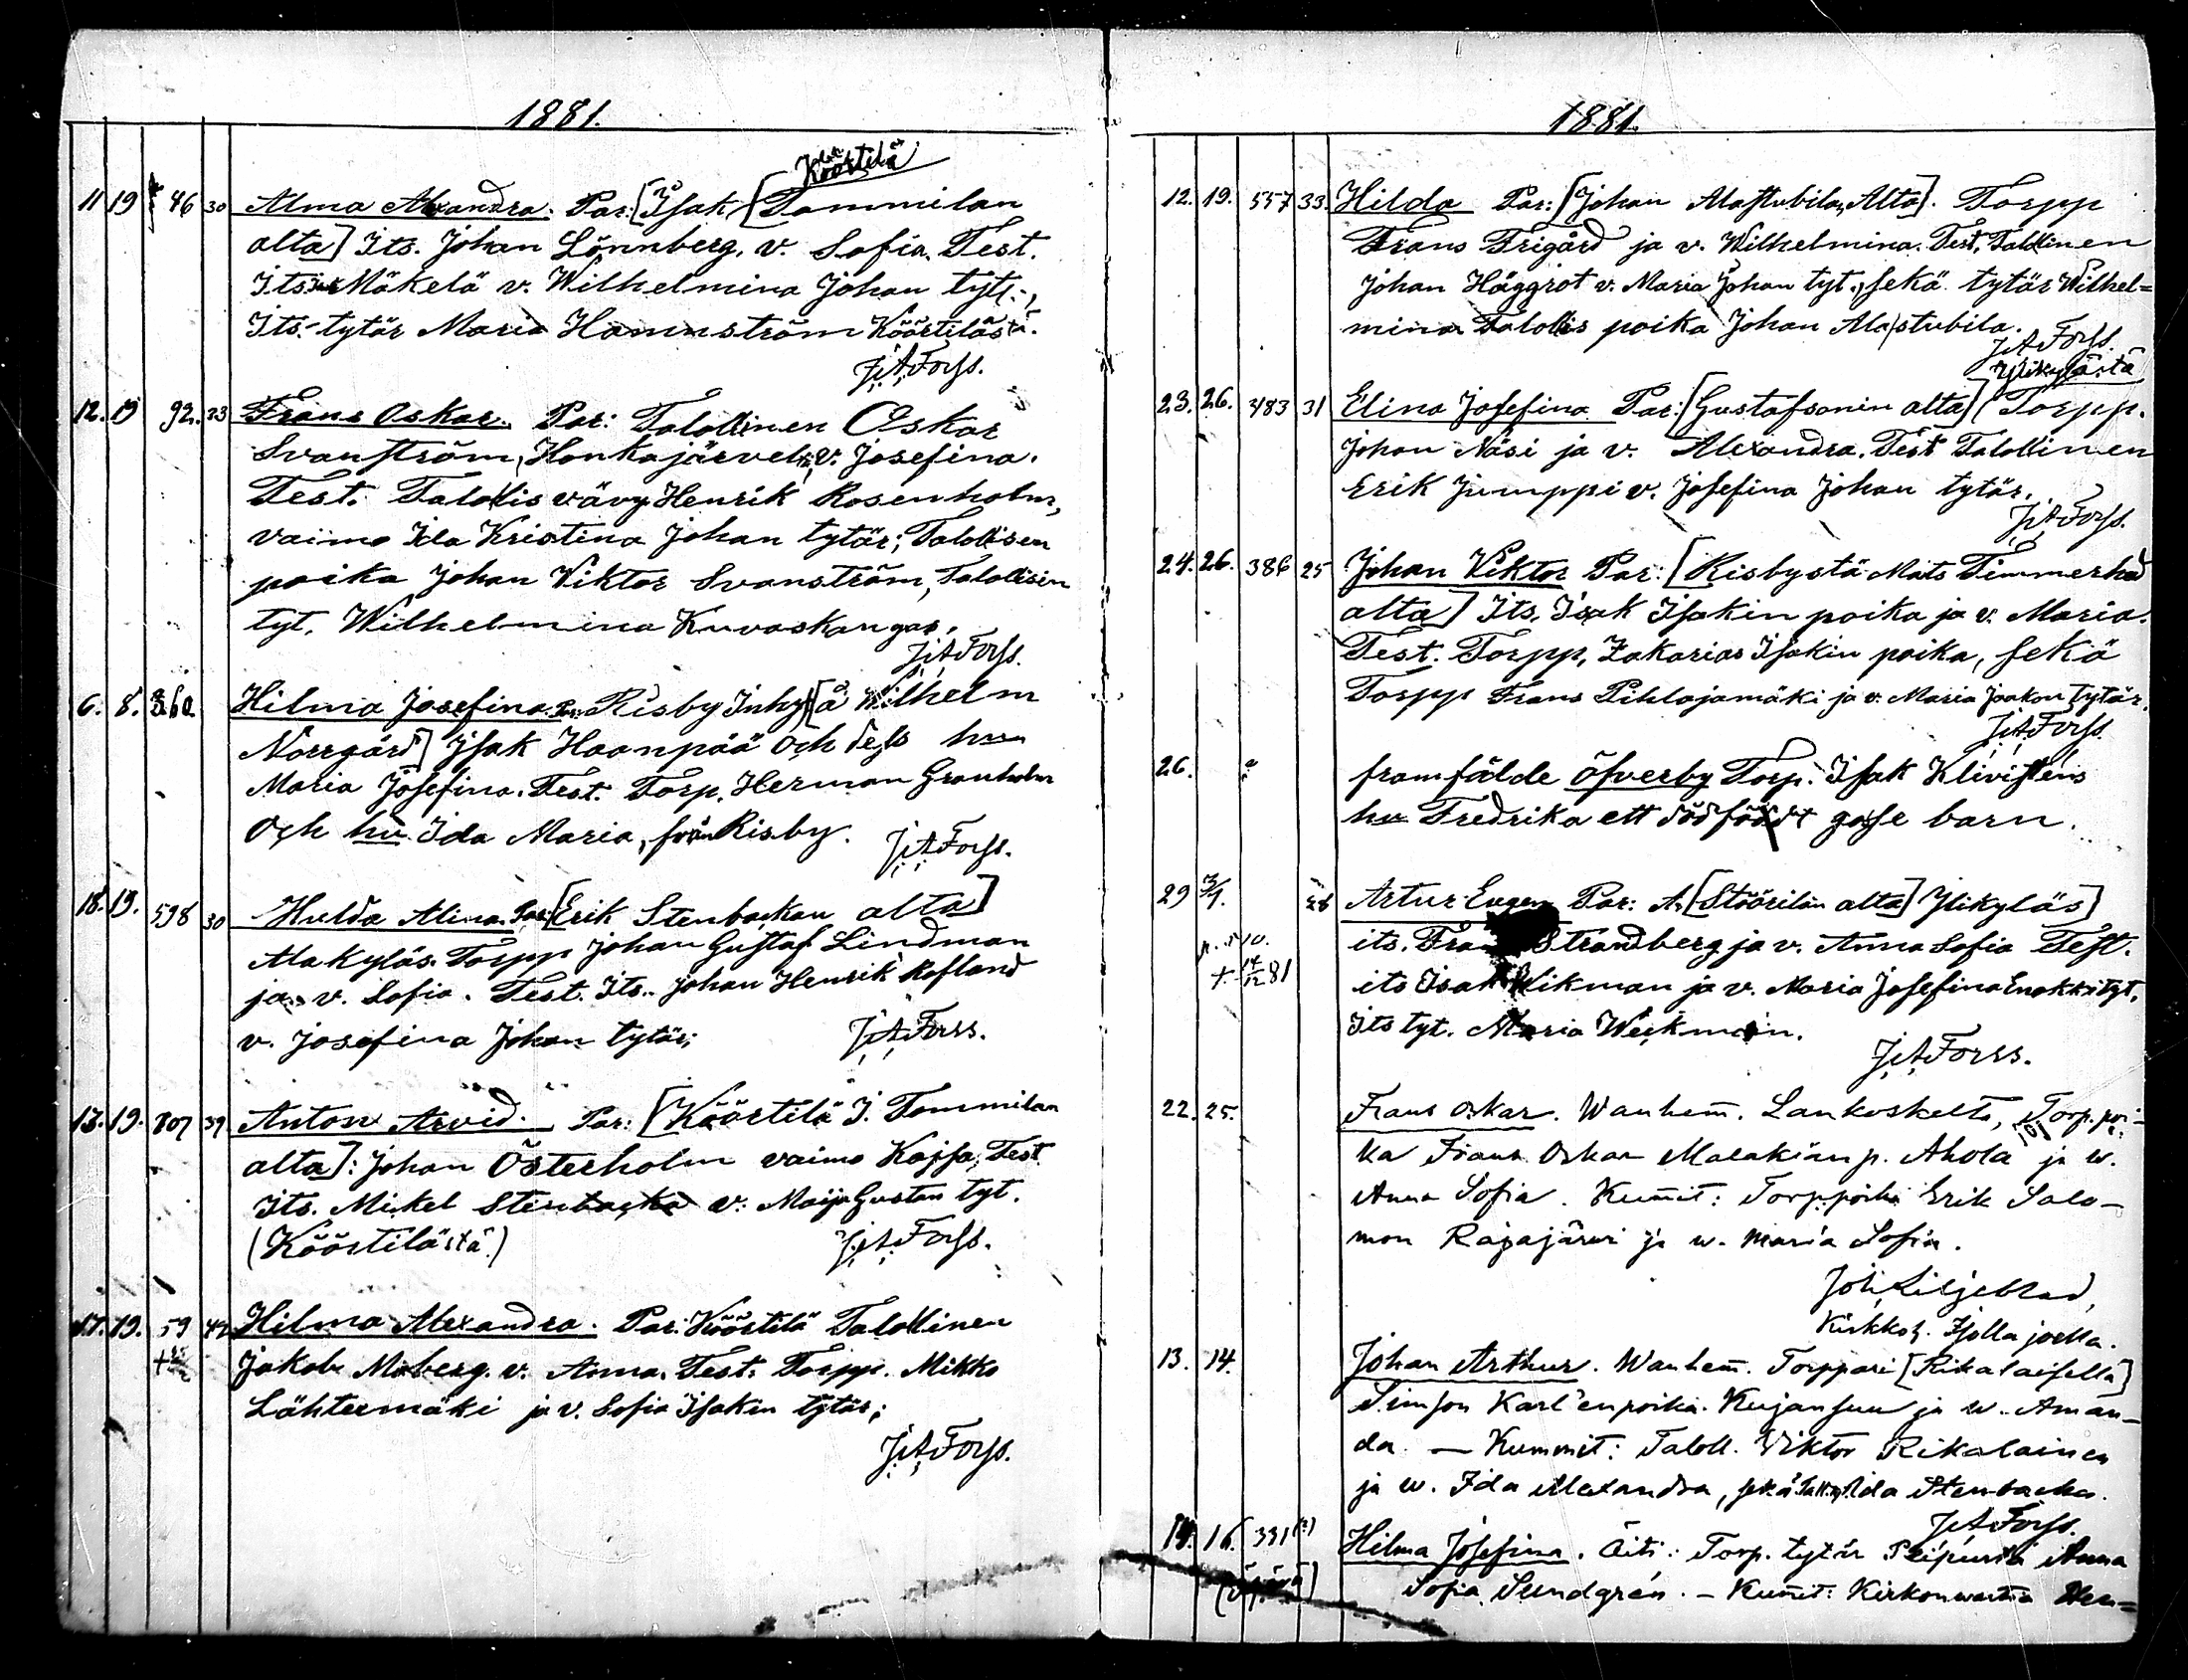 1881.
Köörtilä
11 19 46 30 Alma Alexandra. Par: [Isak [Tommilan
alta] Its. Johan Lönnberg, v. Sofia. Test.
Its Mäkelä v. Wilhelmina Johan tyt.,
Its. tytär Maria Hammström Köörtiläs.
J.A.Forss.
12. 19 92. 33 Frans Oskar. Par: Talollinen Oskar
Svanström, Honkajärvelt, v. Josefina.
Test. Talollis vävy Henrik Rosenholm,
vaimo Ida Kristina Johan tytär; Talollisen
poika Johan Viktor Svanström, Talollisen
tyt. Wilhelmina Kuvaskangas.
J.A.Forss.
6. 8. 360 Hilma Josefina. Par: Risby Inhys [å Wilhelm
Norrgård] Isak Haanpää och dess hu
Maria Josefina. Test. Torp. Herman Granholm
och hu Ida Maria, från Risby.
J.A.Forss.
18. 19. 598 30 Hulda Alina. Par: [Erik Stenbackan alta]
Alakyläs. Torpp Johan Gustaf Lindman
ja v. Sofia. Test. Its. Johan Henrik Rosland
v. Josefina Johan tytär;
J.A.Forss.
13. 19. 807 39 Anton Arvid. Par: [Köörtilä I. Tommilan
alta]: Johan Österholm vaimo Kajsa, Test.
Its. Mikel Stenbacka v. Maija Gustan tyt.
(Köörtilästä)
J.A.Forss.
17. 19. 59 42 Hilma Alexandra. Par: Köörtilä Talollinen
Jakob Moberg. v. Anna. Test. Torpp. Mikko
Lähtermäki ja v. Sofia Isakin tytär;
J.A.Forss.
1881.
12. 19. 557 33. Hilda Par: [Johan Alastubilan Alta]. Torpp
Frans Frigård ja v. Wilhelmina. Test. Talollinen
Johan Häggrot v. Maria Johan tyt., sekä tytär Wilhel=
mina Talollis poika Johan Alastubila.
J.A.Forss.
Ylikylästä
23. 26. 483 31 Elina Josefina Par: [Gustafsonin alta] Torpp.
Johan Näsi ja v. Alexandra. Test Talollinen
Erik Jumppi v. Josefina Johan tytär.
J.A.Forss.
24. 26. 386 25 Johan Viktor Par: [Risbystä Mats Timmerhed
alta] Its. Isak Isakin poika ja v. Maria.
Test. Torpp. Zakarias Isakin poika, sekä
Torpp Frans Pihlajamäki ja v. Maria Jaakon tytär.
J.A.Forss.
26. framfälde öfverby Torp. Isak Klivisténs
hu Fredrika ett dödfödt gosse barn.
29 28 Artur Eugen Par: A. [Stöörilän alta] Ylikyläs]
its. Strandberg ja v. Anna Sofia Test.
+ 14/12 81 its Isak Wikman ja v. Maria Josefina Enokki tyt.
Its tyt. Maria Weckman.
J.A.Forss.
22. 25. Frans Oskar. Wanhem. Lankoskelta, Torp. poi-
ka Frans Oskar Malakian p. Ahola ja w.
Anna Sofia. Kummit: Torp.poika Erik Salo-
mon Rajajärvi ja w. Maria Sofia.
Joh. Liljeblad,
Kirkkoh. Isolla joella.
13. 14. Johan Arthur. Wanhem. Torppari [Rikalaisella]
Simson Karl'enpoika Kujansuu ja w. Aman-
da. — Kummit: Taloll. Viktor Rikalainen
ja w. Ida Alexandra, sekä Ida Stenbacka.
J.A.Forss.
14. 16. 331 Hilma Josefina. Äiti: Torp. tytär Anna
Sofia Sundgrén. — Kummit: Kirkonwartia Hen=